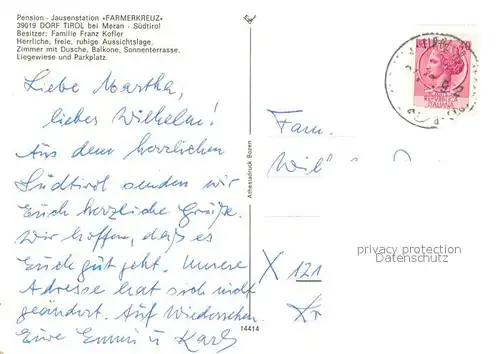 Pension - Jausenstation «FARMERKREUZ»
39019 DORF TIROL bei Meran - Südtirol
Besitzer: Familie Franz Kofler
Herrliche, freie, ruhige Aussichtslage.
Zimmer mit Dusche, Balkone, Sonnenterrasse.
Liegewiese und Parkplatz.
Liebe Martha,
lieber Wilhelm!
Aus dem herrlichen
Südtirol senden wir
Euch herzliche Grüße.
Wir hoffen, daß es
Euch gut geht. Unsere
Adresse hat sich nicht
geändert. Auf Wiedersehen
Eure Emmi u Karl
Athesiadruck Bozen
14414
Fam.
X 121
privacy protection
Datenschutz